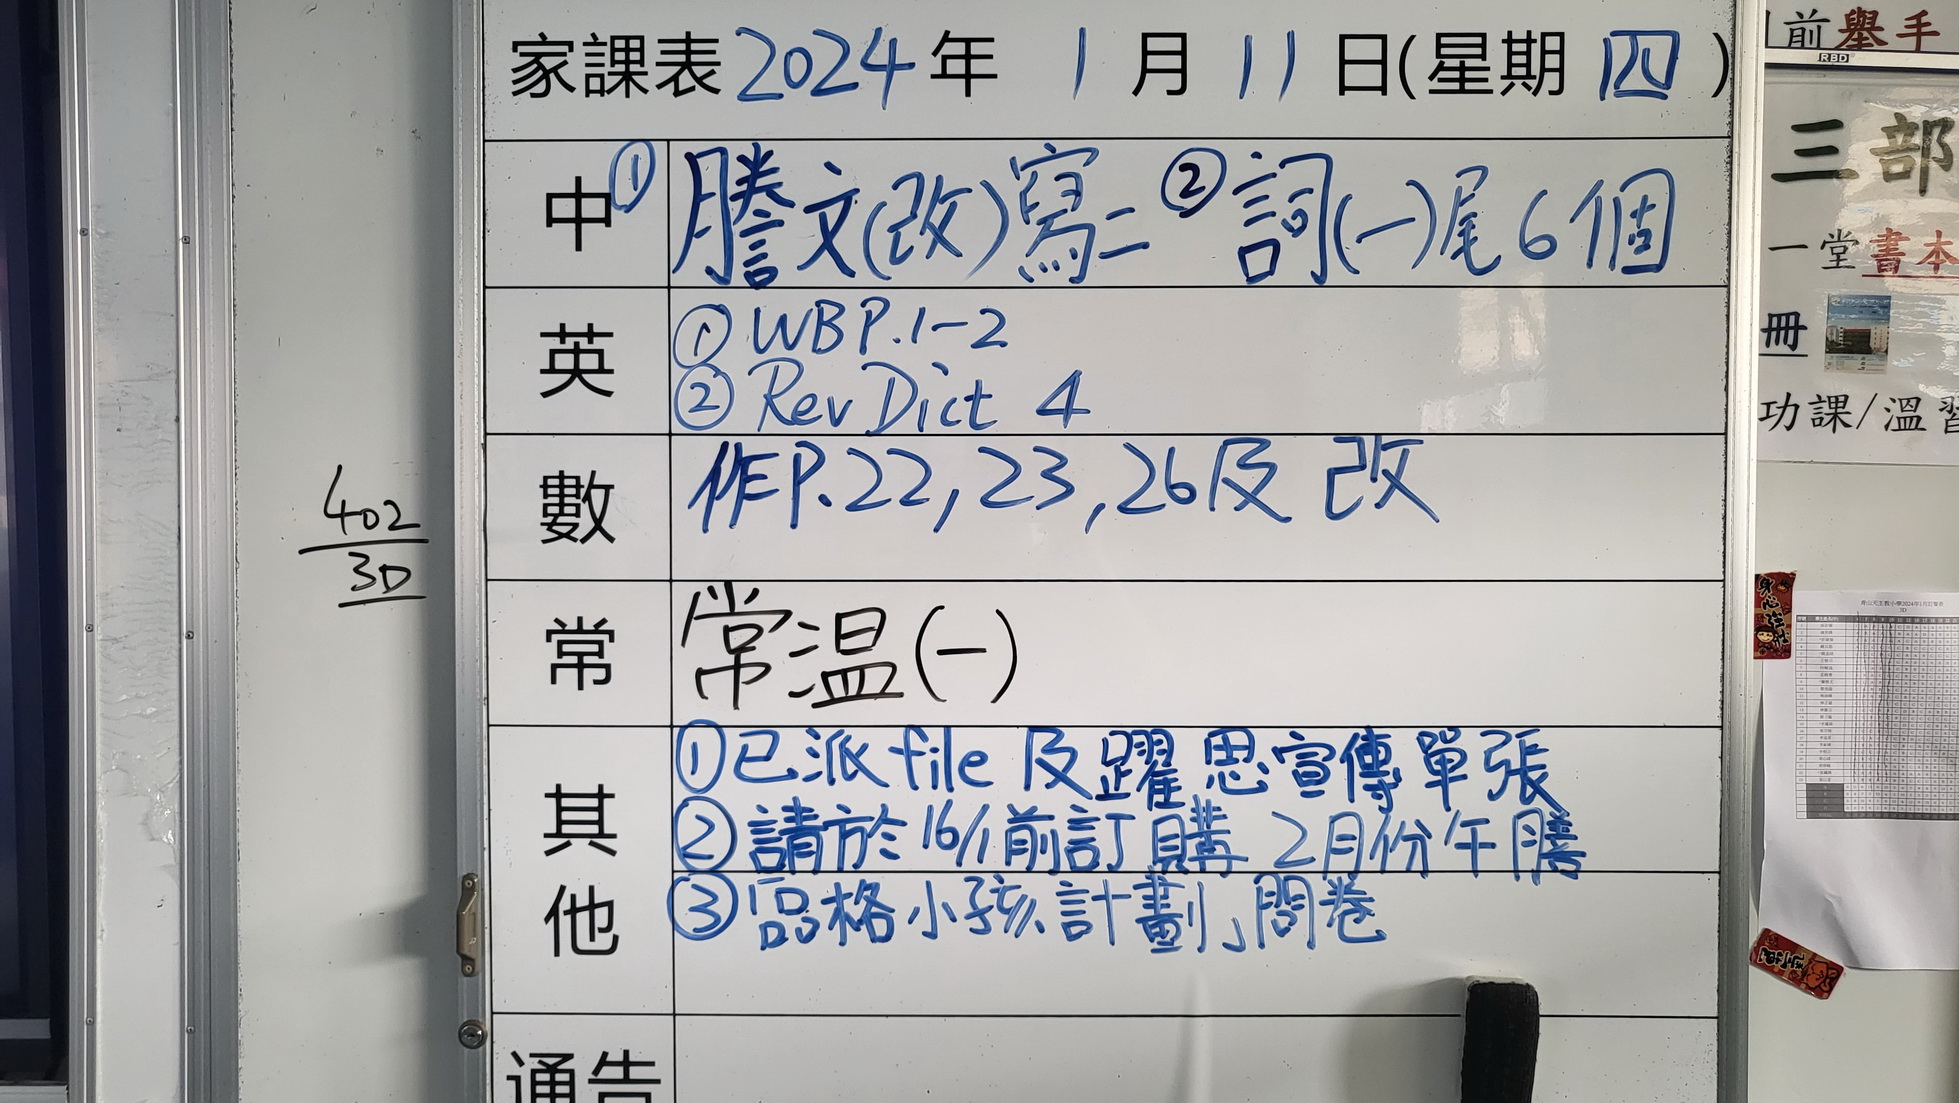 家課表 2024 年 1 月 11 日(星期 四 )
中 ① 謄文(改)寫二 ② 詞(一)尾6個
英 ① WB P.1-2
② Rev Dict 4
數 作P.22, 23, 26及 改
常 常温(一)
其他 ①已派file 及躍思宣傳單張
②請於16/1前訂購 2月份午膳
③品格小孩計劃」問卷
通告
402
3D
前舉手
RBD
三部
一堂書本
冊
功課/溫習
身心壯
3D